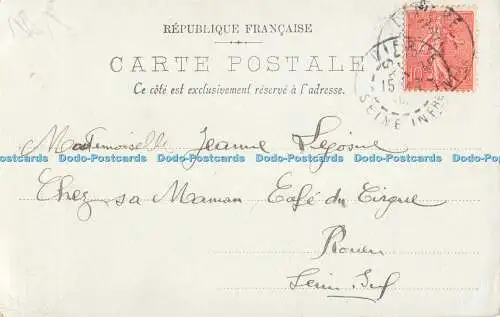 RÉPUBLIQUE FRANÇAISE
CARTE POSTALE
Ce côté est exclusivement réservé à l'adresse.
Mademoiselle Jeanne
Dodo-Postcards Dodo-Postcards Dodo-Postcards Dodo-Postcards Dodo-Postcards Dodo-Postcards
Chez sa Maman Café du Cirque
Rouen
Seine Inf
SEINE INFRE
15
10